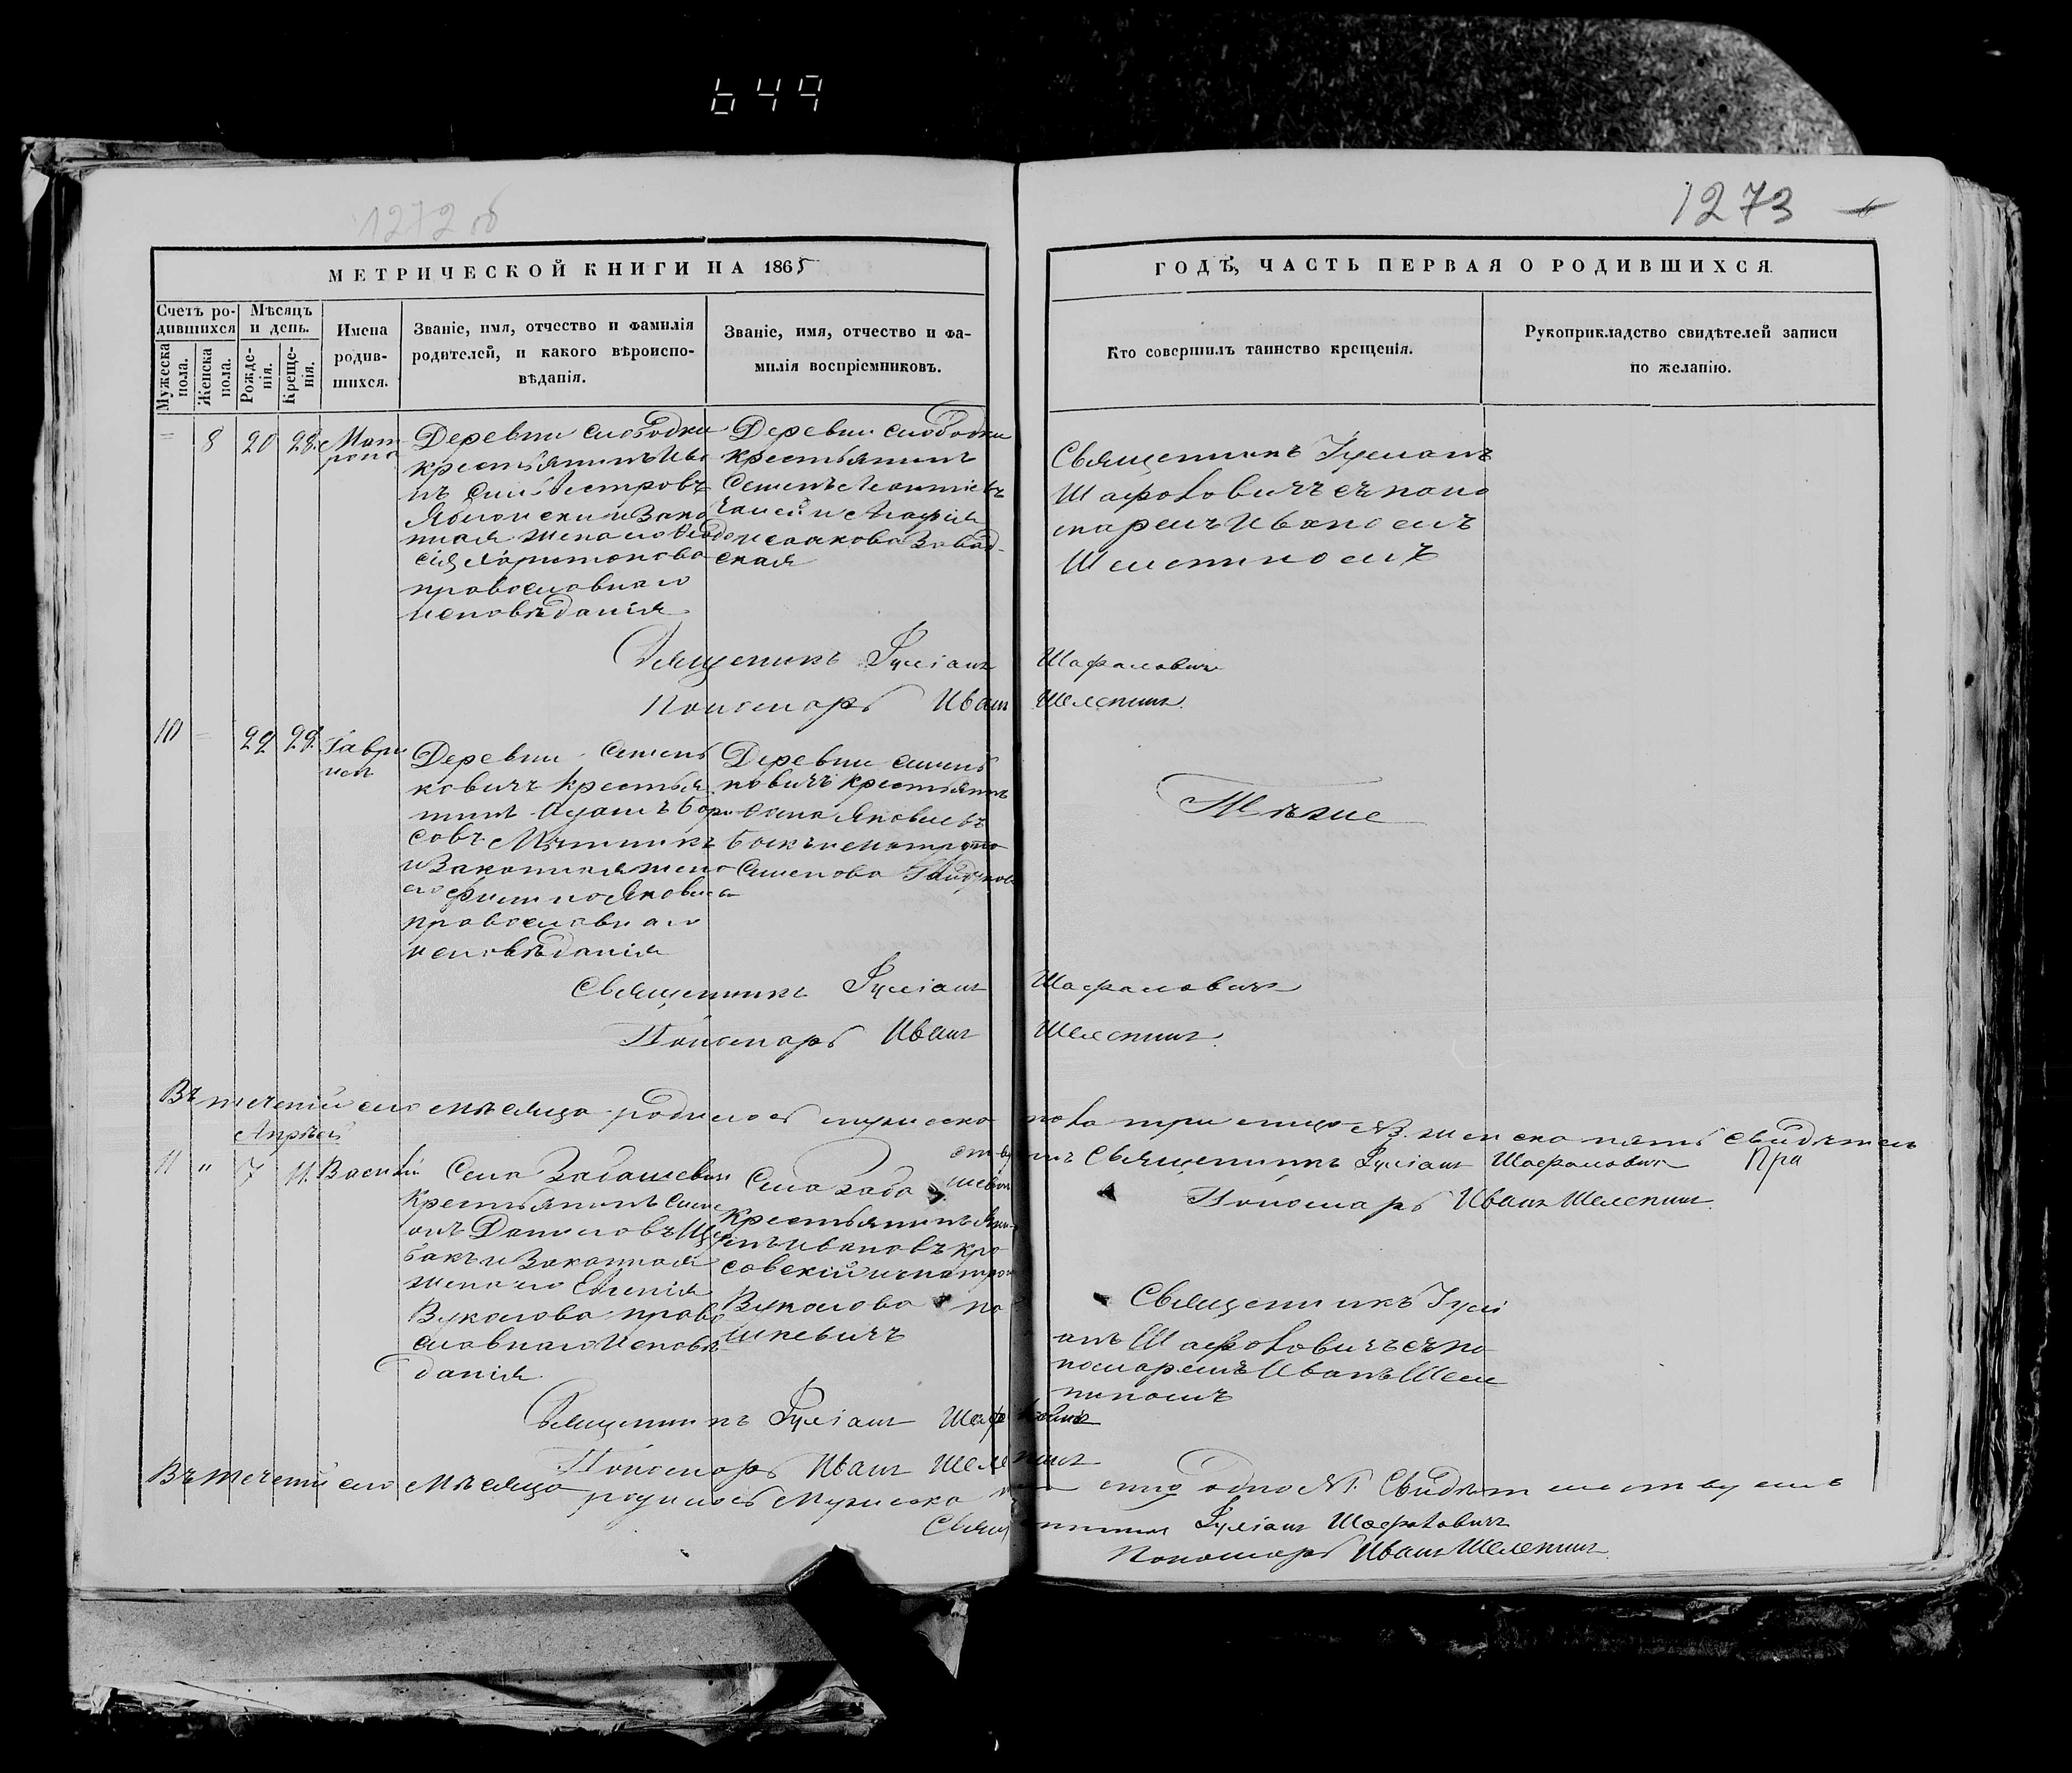 649
1272 об
1273
МЕТРИЧЕСКОЙ КНИГИ НА 1865
ГОДЪ, ЧАСТЬ ПЕРВАЯ О РОДИВШИХСЯ.
Счетъ ро-
дившихся
Мужеска
пола.
Женска
пола.
Мѣсяцъ
и день.
Рожде-
нія.
Креще-
нія.
Имена
родив-
шихся.
Званіе, имя, отчество и фамилія
родителей, и какого вѣроиспо-
вѣданія.
Званіе, имя, отчество и фа-
милія воспріемниковъ.
Кто совершилъ таинство крещенія.
Рукоприкладство свидѣтелей записи
по желанію.
8 20 28 Мат
рона
Деревни слободки
крестьянинъ
Петровъ
и Зако
нная жена его
Харитонова
православнаго
исповѣданія
Деревни слободки
крестьянинъ
Семенъ
и Агафія
ская
Священникъ Іуліанъ
Шафаловичъ съ поно
маремъ Иваномъ
Шелепиномъ
Священникъ Іуліанъ Шафаловичъ
Пономарь Иванъ Шелепинъ.
10 22 29 Гаври
илъ
Деревни Сень
ковичъ крестья
нинъ Адамъ Бори
совъ
и Законная жена
его Яковлева
православнаго
исповѣданія
Деревни Сень
ковичъ крестьянинъ
Фома Яковлевъ
Семенова
Тѣже
Священникъ Іуліанъ Шафаловичъ
Пономарь Иванъ Шелепинъ.
Въ теченіи сего мѣсяца родилось мужеска пола три лица №3. женска пять свидѣтель
ствуемъ Священникъ Іуліанъ Шафаловичъ При
Пономарь Иванъ Шелепинъ.
Апрѣль
11 " 7 11. Василій
Села
Крестьянинъ Симе
онъ Даниловъ
и Законная
жена его Евгенія
Вуколова право
славнаго Исповѣ
данія
Села
Крестьянинъ
Ивановъ Кра
совскій и Матрона
Вуколова
шкевичъ
Священникъ Іулі
анъ Шафаловичъ съ по
номаремъ Иванъ Шеле
пиномъ
Священникъ Іуліанъ Шафаловичъ
Пономарь Иванъ Шелепинъ
Въ теченіи сего мѣсяца родилось Мужеска лицо одно №1. Свидѣтельствуемъ
Священникъ Іуліанъ Шафаловичъ
Пономарь Иванъ Шелепинъ.